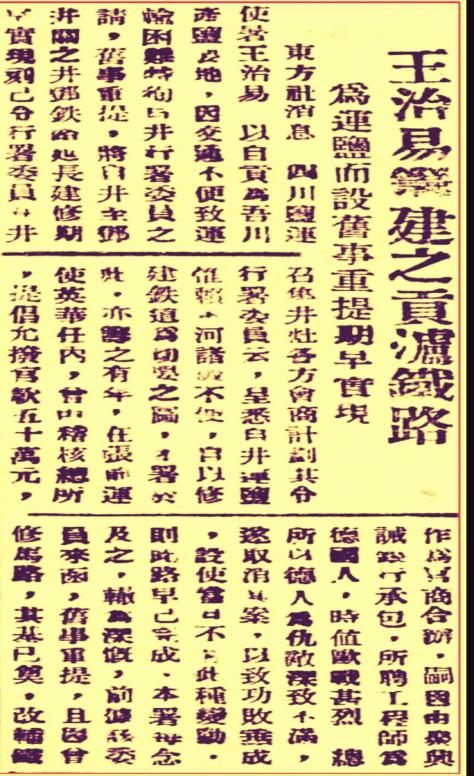 王治易籌建之貢瀘鐵路
爲運鹽而設舊事重提期早實現
東方社消息　四川鹽運
使署王治易　以自貢爲吾川
產鹽之地，因交通不便致運
輸困難特徇自井行署委員之
請，舊事重提，將自井至鄧
井關之井鄧鐵路延長建修期
早實現刻已令行署委員
召集井灶各方會商計劃其令
行署委員云，呈悉自井運鹽
惟賴一河諸　不便，自以修
建鐵道爲切要之圖，本署於
此，亦籌之有年，在張前運
使英華任內，曾由稽核總所
，提倡允撥官款五十萬元，
作爲官商合辦，嗣因由奧與
誠銀行承包，所聘工程師爲
德國人，時値歐戰甚烈　總
所以德人爲仇敵深致不滿，
遂取消此案，以致功敗垂成
，設使當日不　此種變動，
則此路早已完成，本署每念
及之，輒爲深慨，前據該委
員來函，舊事重提，且因曾
修馬路，其基已奠，改鋪鐵